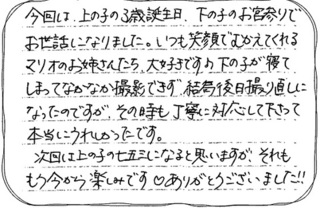 今回は、上の子の3歳誕生日、下の子のお宮参りで
お世話になりました。いつも笑顔でむかえてくれる
マリオのお姉さんたち、大好きです♪下の子が寝て
しまってなかなか撮影できず、結局後日撮り直しに
なったのですが、その時も丁寧に対応して下さって
本当にうれしかったです。
次回は上の子の七五三になると思いますが、それも
もう今から楽しみです♡ありがとうございました!!